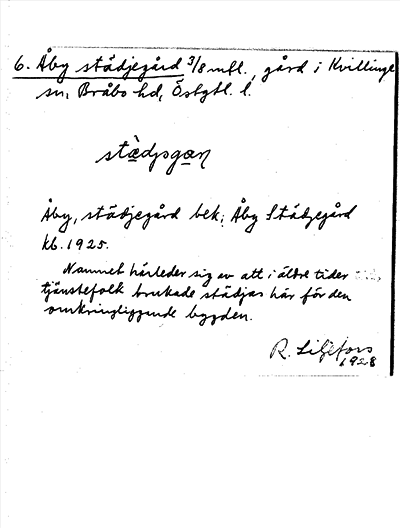 6. Åby städjegård 3/8 mtl., gård i Kvillinge
sn, Bråbo hd, Östgtl. l.
städjsgan
Åby, städjegård bek; Åby Städjegård
kb. 1925.
Namnet härleder sig av att i äldre tider
tjänstefolk brukade städjas här för den
omkringliggande bygden.
R. Liljefors
1928